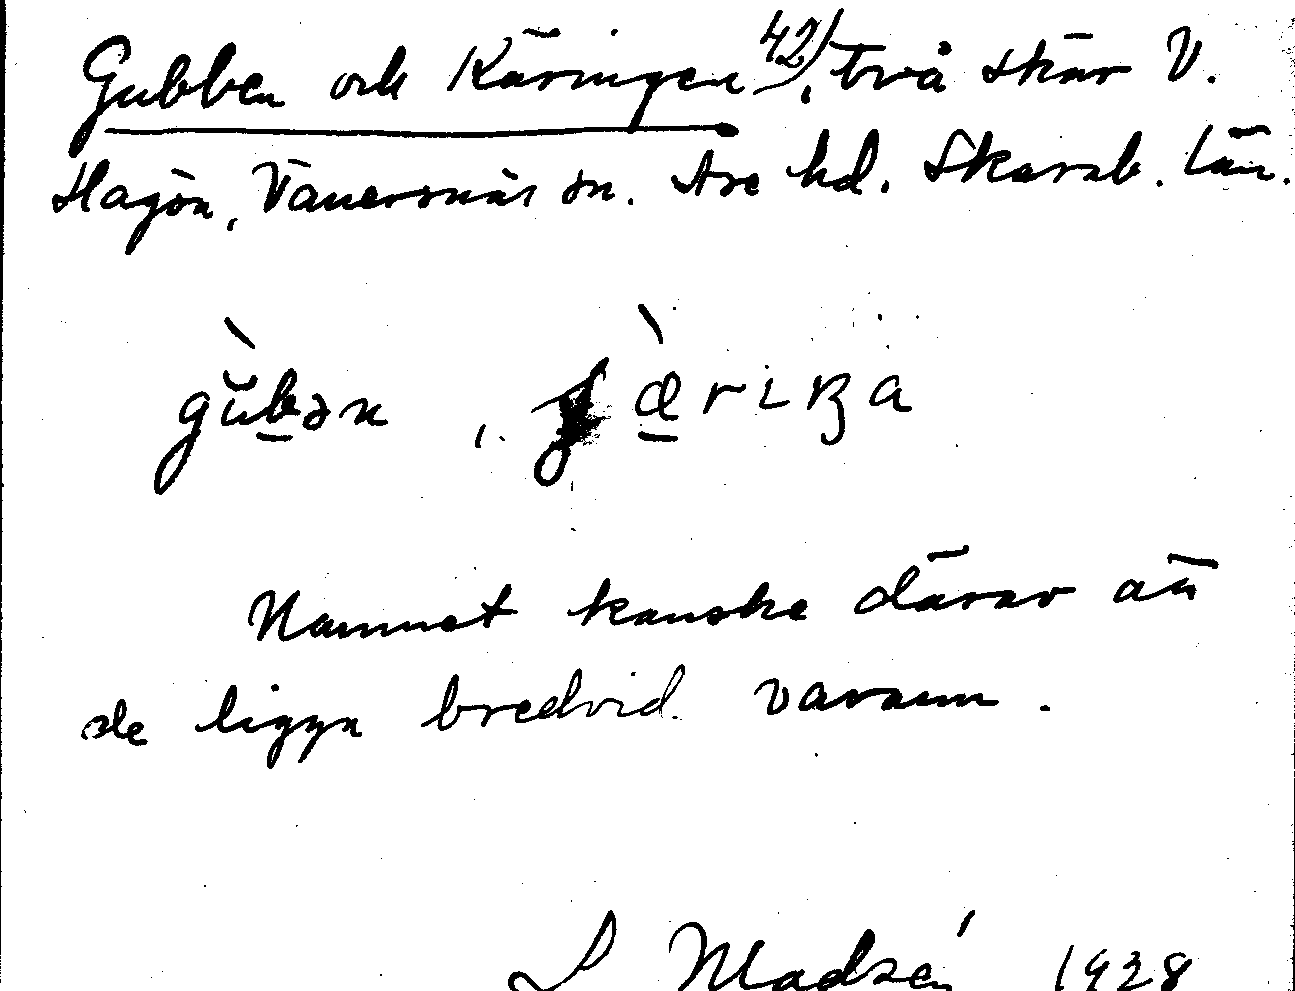 Gubben och Käringen 42), två skär V.
Hagön, Vänersnäs sn. Åse hd. Skarab. län.
gùbən , ʝæ̀riŋa
Namnet kanske därav att
de ligga bredvid varann.
S Madsén 1928